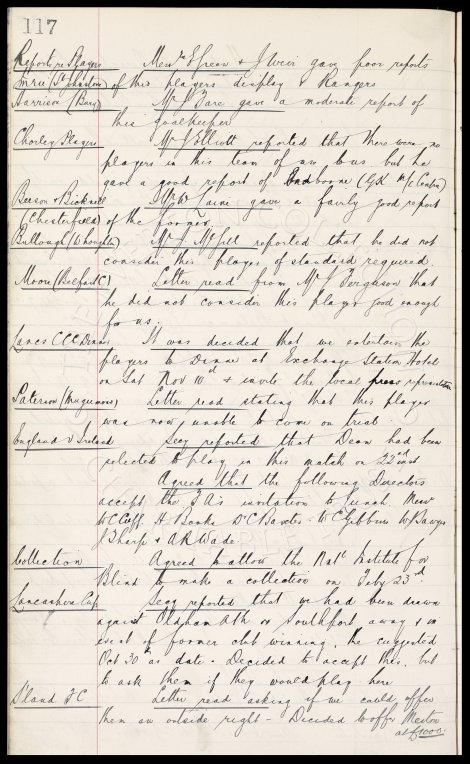 117
Reports re Players Messrs E Green & J Weir gave poor reports
Imrie (St Johnstone) of this players display v Rangers
Harrison (Bury) Mr J Fare gave a moderate report of
this goalkeeper
Chorley Players Mr J Elliott reported that there were no
players in this team of use to us but he
gave a good report of (GK M/c Central)
Beeson & Bicknell Mr gave a fairly good report
(Chesterfield) of the former.
Bullough (Houghton) Mr reported that he did not
consider this player of standard required
Moore (Belfast C) Letter read from Mr J Ferguson that
he did not consider this player good enough
for us.
Lancs CCC Dinner It was decided that we entertain the
players to Dinner at Exchange Station Hotel
on Sat Nov 10th & invite the local press representatives
Paterson (Mugiemoss) Letter read stating that this player
was now unable to come on trial.
England v Ireland Secy reported that Dean had been
selected to play in this match on 22nd inst
Agreed that the following Directors
accept the FA's invitation to lunch, Messrs
W C Cuff, H Banks, Dr C Baxter, W C Gibbins W J Sawyer
J Sharp & A R Wade.
Collection Agreed to allow the Natl Institute for
Blind to make a collection on Feby 23rd
Lancashire Cup Secy reported that we had been drawn
against Oldham Ath or Southport away & in
event of former club winning, he suggested
Oct 30th as date. Decided to accept this, but
to ask them if they would play here
S'land FC Letter read asking if we could offer
them an outside right - Decided to offer Meston
at £1000.